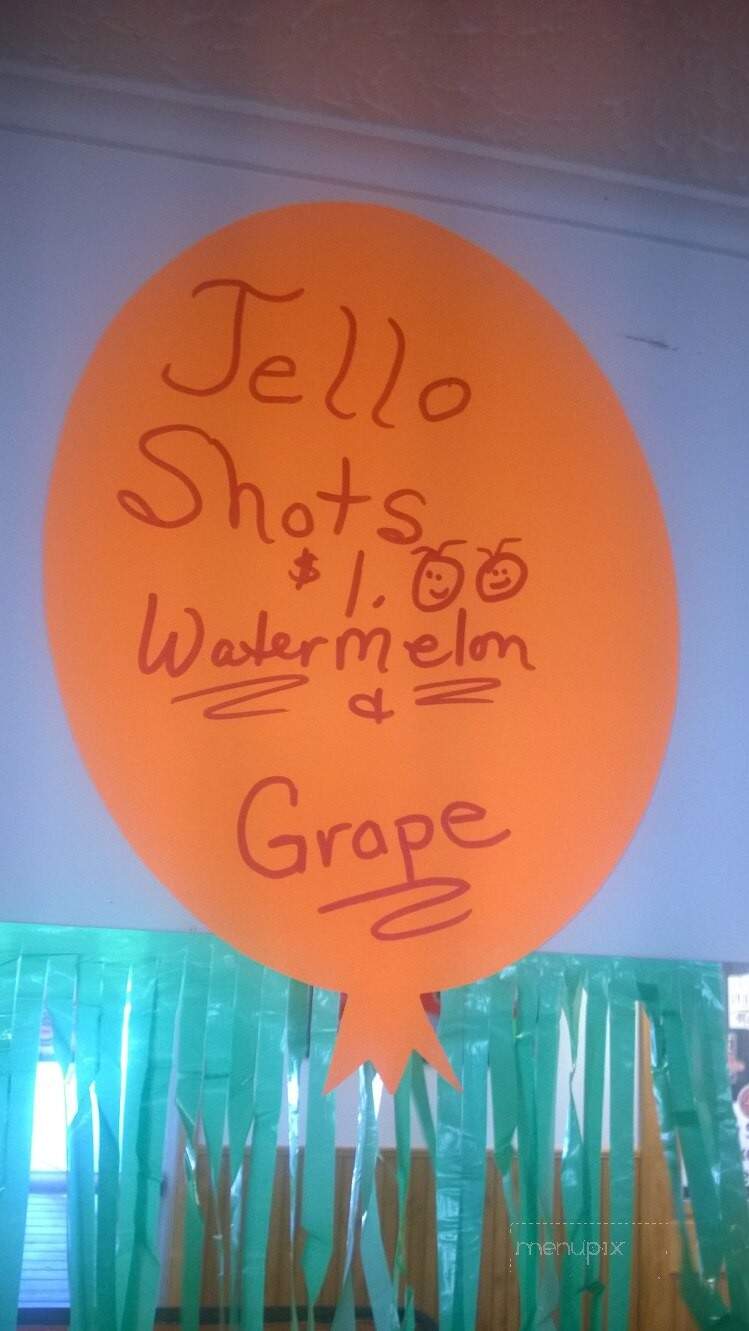 Jello
Shots
$1.00
Watermelon
&
Grape
menupix